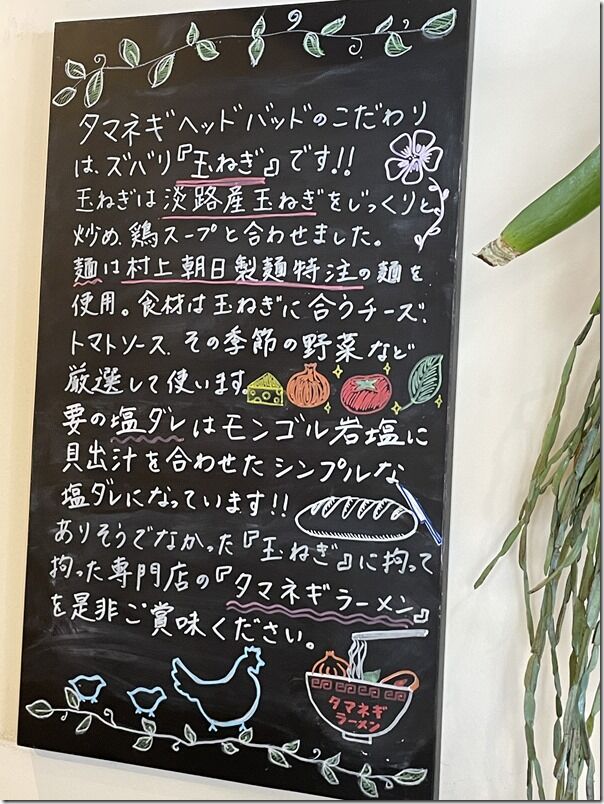 タマネギヘッドバッドのこだわり
は、ズバリ『玉ねぎ』です!!
玉ねぎは淡路産玉ねぎをじっくりと
炒め、鶏スープと合わせました。
麺は村上朝日製麺特注の麺を
使用。食材は玉ねぎに合うチーズ、
トマトソース、その季節の野菜など
厳選して使います
要の塩ダレはモンゴル岩塩に
貝出汁を合わせたシンプルな
塩ダレになっています!!
ありそうでなかった『玉ねぎ』に拘って
拘った専門店の『タマネギラーメン』
を是非ご賞味ください。
タマネギ
ラーメン